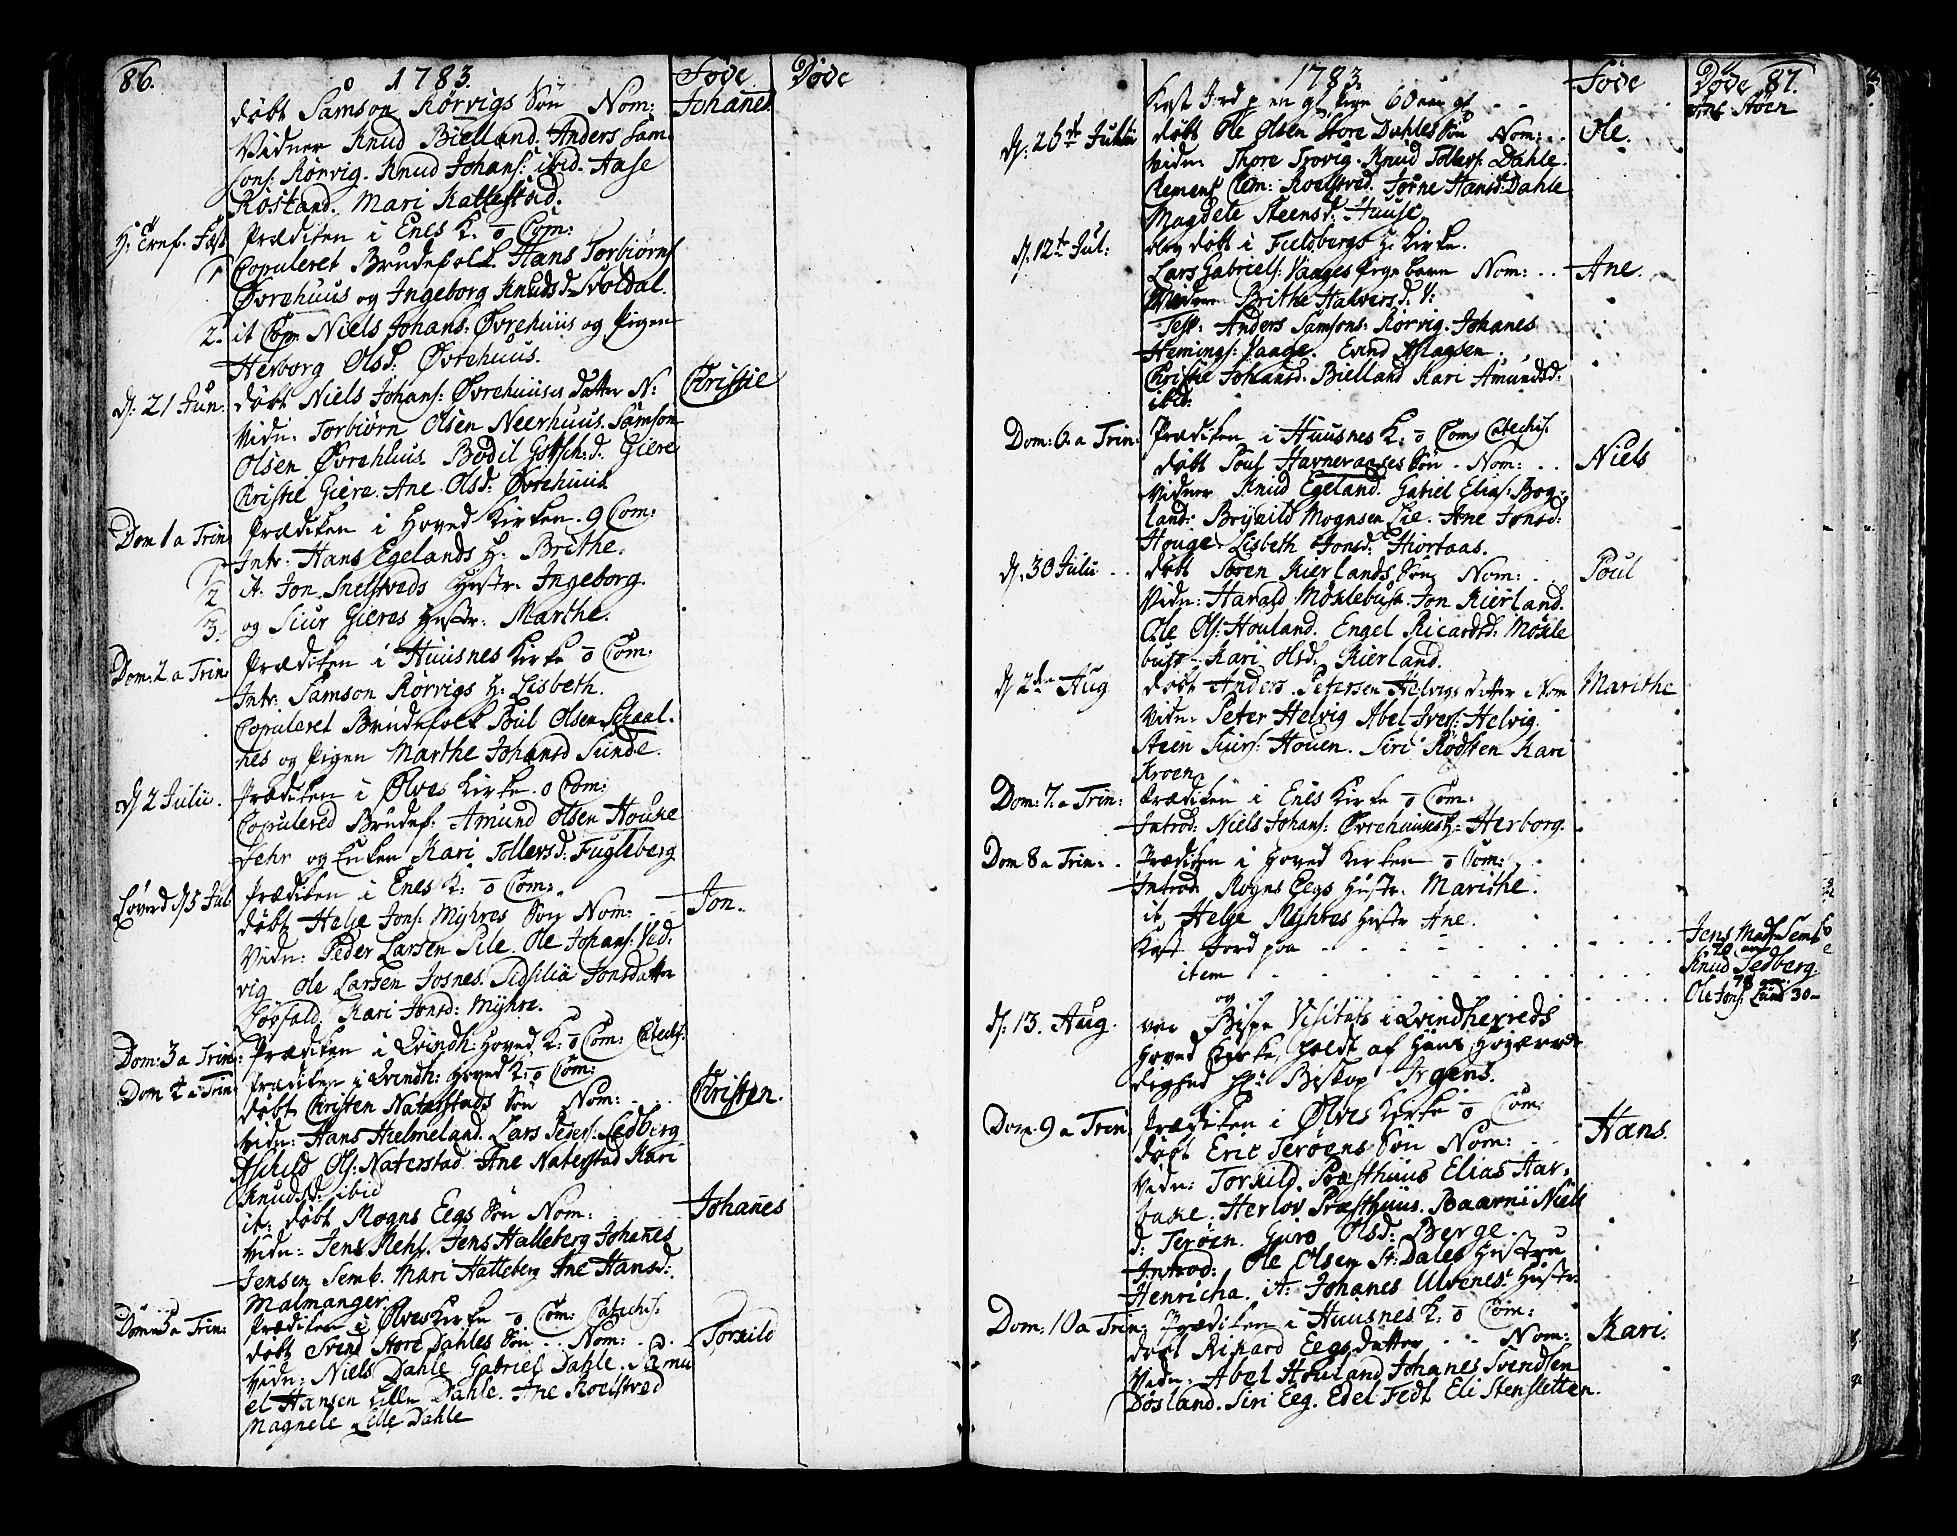 86.
1783.
Föde
Döde
döbt Samson Rörvigs Sön Nom: Johannes
Vidner Knud Bielland. Anders Sam
sons. Rörvig. Knud Johans: ibid. Aase
Röstand. Mari Kattestad.
Prædiken i Enes K: o Com:
1 Copuleret Brudefolk Hans Torbiörns
Övrehuus og Ingeborg Knudsd. Svoldal.
2. it Cop: Niels Johans: Övrehuus og Pigen
Herborg Olsd: Övrehuus.
d: 21 Jun. döbt Niels Johans: Övrehuuses datter N: Christie
Vidn: Torbiörn Olsen Neerhuus. Samson
Olsen Övrehuus. Bodil Gottsch:d. Giere
Christie Giere. Ane Olsd: Övrehuus.
Dom 1 a Trin: Prædiken i Hoved Kirken. 9 Com:
1 Intr: Hans Egelands H: Brithe.
2 it. Jon Snelstveds Hustr: Ingeborg.
3. og Siur Gieres Hustr: Marthe.
Dom: 2 a Trin: Prædiken i Huusnes Kirke o Com:
Intr: Samson Rörvigs H: Lisbeth.
Copuleret Brudefolk Poul Olsen Skaal-
nes og Pigen Marthe Johansd Sunde.
d 2 Julii. Prædiken i Ölves Kirke. o Com:
Copulered Brudef: Amund Olsen Houke
Fehr og Enken Kari Tollersd: Fugleberg
Löverd d 5 Jul Prædiken i Enes K: o Com:
döbt Helje Jons: Myhres Sön Nom: Jon.
Vidn: Peder Larsen Pile. Ole Johans: Ved-
vig Ole Larsen Josnes. Sidsilia Jonsdatter
Lövfald. Kari Jonsd: Myhre.
Dom: 3 a Trin: Prædiken i Qvindh: Hoved K: o Com: Catechis:
Dom 4 a Trin: Prædiken i Qvindh: Hoved K: o Com:
döbt Christen Naterstads Sön Nom: Christen.
Vidn: Hans Hielmeland. Lars Peders: Sedberg
Aschild Ols: Naterstad. Ane Naterstad Kari
Knudsd: ibid
it: döbt Mogns Eegs Sön Nom: Johannes
Vidn: Jens Mehl. Jens Halleberg Johannes
Jensen Semb. Mari Hatteberg Ane Hansd:
Malmanger
Dom: 5 a Trin: Prædiken i Ölves Kirke o Com: Catechis:
döbt Svend Store Dahles Sön Nom: Torkild
Vidn: Niels Dahle Gabriel Dahle. Samu
el Hansen Lille Dahle. Ane Roelstved
Magnele Lille Dahle
1783.
Föde
Döde 87.
Kast Jord p en gl Pige 60 aar gl
d: 26de Julii döbt Ole Olsen Store Dahles Sön Nom: Ole.
Vidn: Thore Trovig. Knud Tollefs: Dahle.
Clemens Clem: Roelstved. Torne Hansd: Dahle
Magdele Steensd: Huuse
d: 12te Jul: blev döbt i Fieldbergs H: Kirke.
Lars Gabriels: Vaages Pige barn Nom: Ane.
Vidner Brithe Halvorsd: V:
Test: Anders Samsons: Rörvig. Johanes
Hemings: Vaage. Evind Aslagsen.
Christie Johansd: Bielland Kari Amundsd:
ibid:
Dom: 6 a Trin: Prædiken i Huusnes K: o Com Catechis:
döbt Poul Havneraases Sön. Nom: Niels
Vidner Knud Egeland. Gabiel Elias: Bog-
land: Brynild Mognsen Lie. Ane Jonsd:
Houge. Lisbeth Jonsd: Hiortaas.
d: 30 Julii döbt Sören Kierlands Sön Nom: Poul
Vidn: Harald Möklebust. Jon Kierland.
Ole Ols: Houland. Engel Ricardsd: Mökle
bust. Kari Olsd. Kierland.
d 2den Aug döbt Anders Petersen Helvigs datter Nom Marithe
Vidn: Peter Helvig Abel Ivers: Helvig.
Steen Siurs: Houen. Siri Rödsten Kari
Kroen
Dom: 7. a Trin: Prædiken i Enes Kirke o Com:
Introd: Niels Johans: Övrehuuses H: Herborg.
Dom 8 a Trin: Prædiken i Hoved Kirken o Com:
Introd: Mogns Eegs Hustr: Marithe.
it. Helje Myhres Hustr Ane.
Kast Jord paa Jens Mads: Semb
70 aar
item Knud Sedberg
78 aar
og Ole Jons: Lund 30
d: 13. Aug. var Bispe Visitats i Qvindherreds
Hoved Kirke, holdt af Hans Höyærvær
dighed Hr: Biskop Irgens.
Dom: 9 a Trin: Prædiken i Ölves Kirke o Com:
döbt Eric Teröens Sön Nom: Hans.
Vidn: Torkild Præsthuus Elias Aar-
bake. Herlov Præsthuus. Baarnii Niels
d: Teröen. Guro Olsd: Berge.
Introd: Ole Olsen St: Dales Hustru
Henricha. it: Johanes Ulvenes Hustr:
Dom: 10 a Trin: Prædiken i Huusnes K: o Com:
döbt Rikard Eegs datter Nom: Kari.
Vidn: Abel Houland Johanes Svendsen
Dösland. Siri Eeg. Edel Fedt Eli Stensletten.